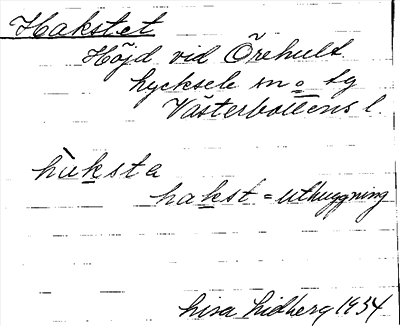 Hakstet
Höjd vid Örehult
Lycksele sn o. sg
Västerbottens l.
hùksta
hakst = uthuggning
Lisa Lidberg 1934